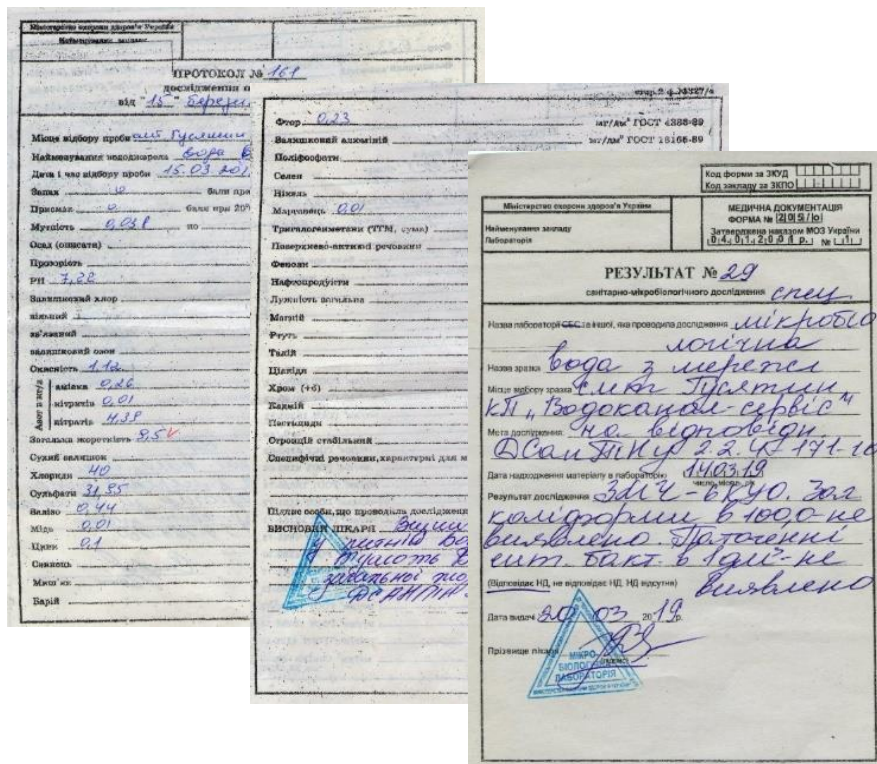 Міністерство охорони здоров'я України
Найменування закладу
ПРОТОКОЛ № 161
дослідження
від "15" березн
Місце відбору проби смт Гусятин
Найменування вододжерела вода
Дата і час відбору проби 15.03.201
Запах 0 бали при
Присмак 0 бали при 20°
Мутність 0,038 по
Осад (описати)
Прозорість
РН 7,22
Залишковий хлор
вільний
зв'язаний
залишковий озон
Окисність 1,12
Азот в мг/л
аміака 0,26
нітритів 0,01
нітратів 4,38
Загальна жорсткість 8,5 V
Сухий залишок
Хлориди 40
Сульфати 31,95
Залізо 0,44
Мідь 0,01
Цинк 0,1
Свинець
Миш'як
Барій
стор.2 ф.№327/о
Фтор 0,23 мг/дм³ ГОСТ 4386-89
Залишковий алюміній мг/дм³ ГОСТ 18165-89
Поліфосфати
Селен
Нікель
Марганець 0,01
Тригалогенметани (ТГМ, сума)
Поверхнево-активні речовини
Феноли
Нафтопродукти
Лужність загальна
Магній
Ртуть
Талій
Ціаніди
Хром (+6)
Кадмій
Пестициди
Стронцій стабільний
Специфічні речовини, характерні для м
Підпис особи, що проводила дослідженн
ВИСНОВКИ ЛІКАРЯ
загальної
ДСАНПІН
Код форми за ЗКУД
Код закладу за ЗКПО
Міністерство охорони здоров'я України
Найменування закладу
Лабораторія
МЕДИЧНА ДОКУМЕНТАЦІЯ
ФОРМА № 205/о
Затверджена наказом МОЗ України
04.01.2001 р. № 1
РЕЗУЛЬТАТ № 29
санітарно-мікробіологічного дослідження спец
Назва лабораторії СЕС та іншої, яка проводила дослідження мікробіо
логічна
Назва зразка вода з мережі
Місце відбору зразка смт Гусятин
КП "Водоканал-сервіс"
Мета дослідження на відповідн
ДСанПіНу 2.2.4-171-10
Дата надходження матеріалу в лабораторію 14.03.19
число, місяць, рік
Результат дослідження ЗМЧ - 6 КУО. Заг
коліформи в 100,0 - не
виявлено. Патогенні
кит. бакт. в 1 дм³ - не
виявлено
(Відповідає НД, не відповідає НД, НД відсутня)
Дата видачі 20 03 2019 р.
Прізвище лікаря
підпис
МІКРО-
БІОЛОГІЧНА
ЛАБОРАТОРІЯ